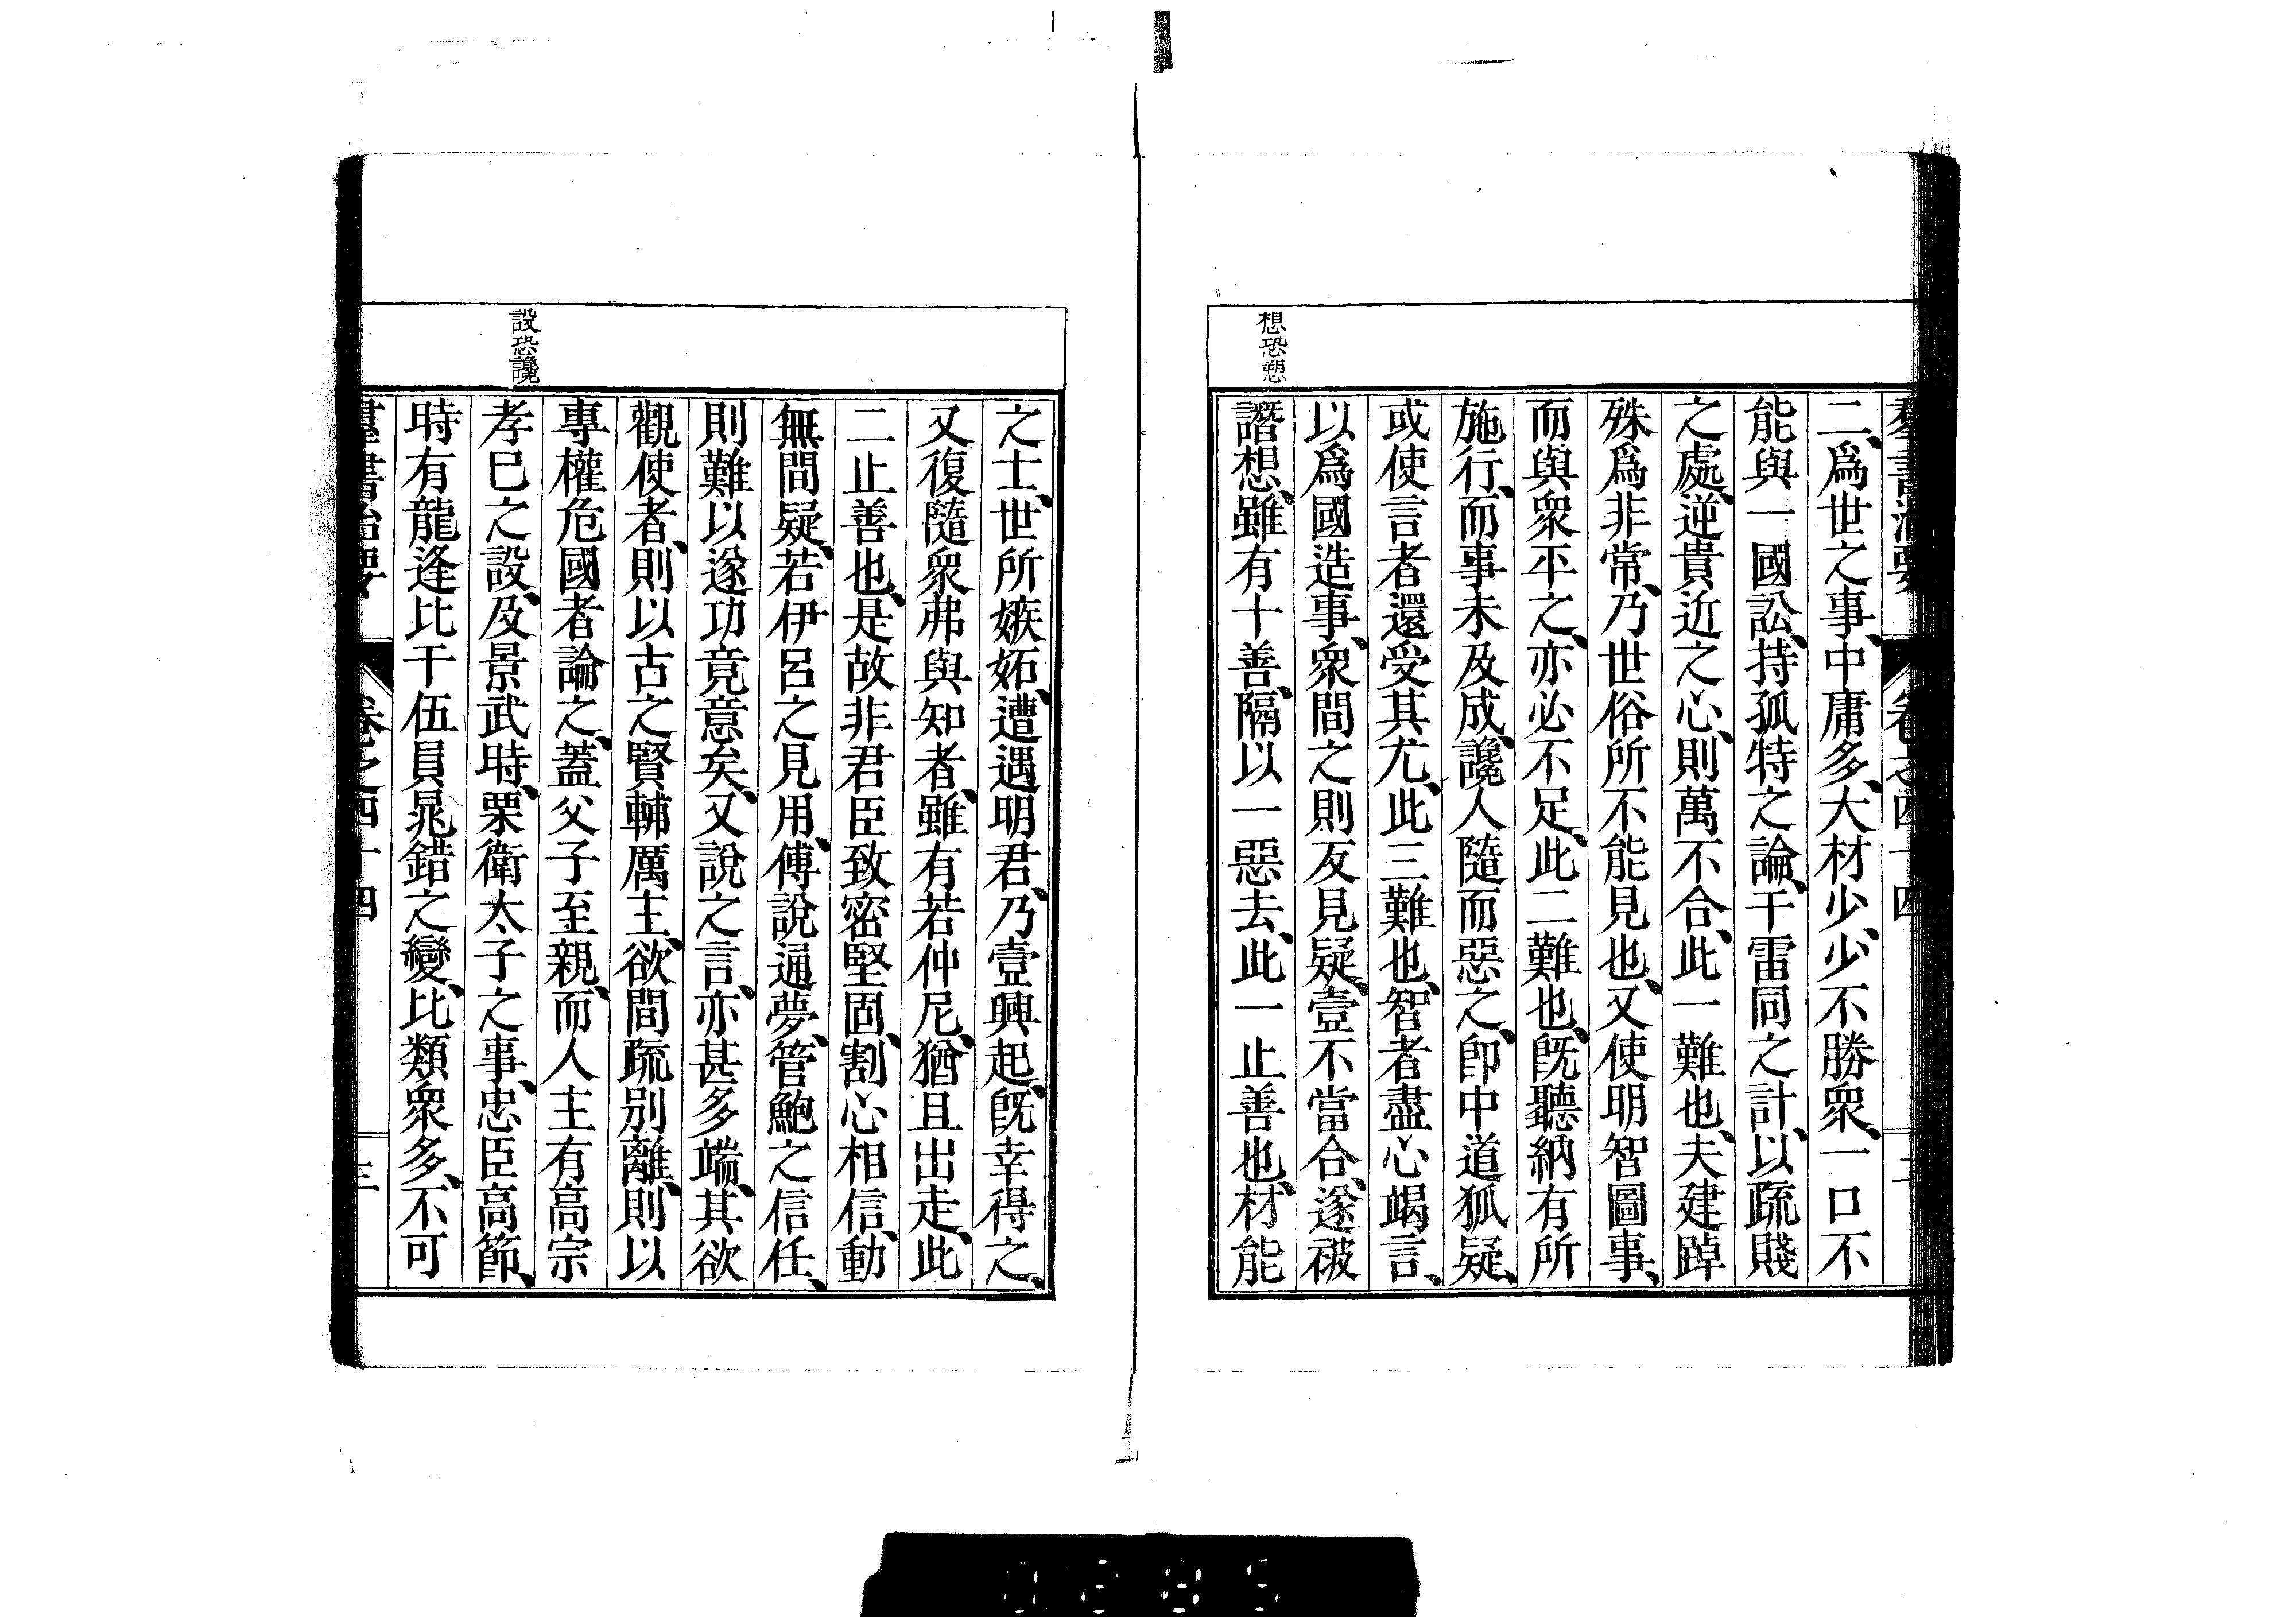 羣書治要　卷之四十四
二、爲世之事、中庸多、大材少、少不勝衆、一口不
能與一國訟、持孤特之論、干雷同之計、以疏賤
之處、逆貴近之心、則萬不合、此一難也、夫建踔
殊爲非常、乃世俗所不能見也、又使明智圖事、
而與衆平之、亦必不足、此二難也、旣聽納有所
施行、而事未及成、讒人隨而惡之、卽中道狐疑、
或使言者還受其尤、此三難也、智者盡心竭言、
以爲國造事、衆間之則反見疑、壹不當合、遂被
想恐愬
譖想、雖有十善、隔以一惡去、此一止善也、材能
之士、世所嫉妬、遭遇明君、乃壹興起、旣幸得之、
又復隨衆弗與知者、雖有若仲尼、猶且出走、此
二止善也、是故非君臣致密堅固、割心相信、動
無間疑、若伊呂之見用、傅說通夢、管鮑之信任、
則難以遂功竟意矣、又說之言、亦甚多端、其欲
觀使者、則以古之賢輔厲主、欲間疏別離、則以
專權危國者論之、蓋父子至親、而人主有高宗
設恐讒
孝已之設、及景武時、栗衛太子之事、忠臣高節、
時有龍逢比干伍員晁錯之變、比類衆多、不可
羣書治要　卷之四十四　三